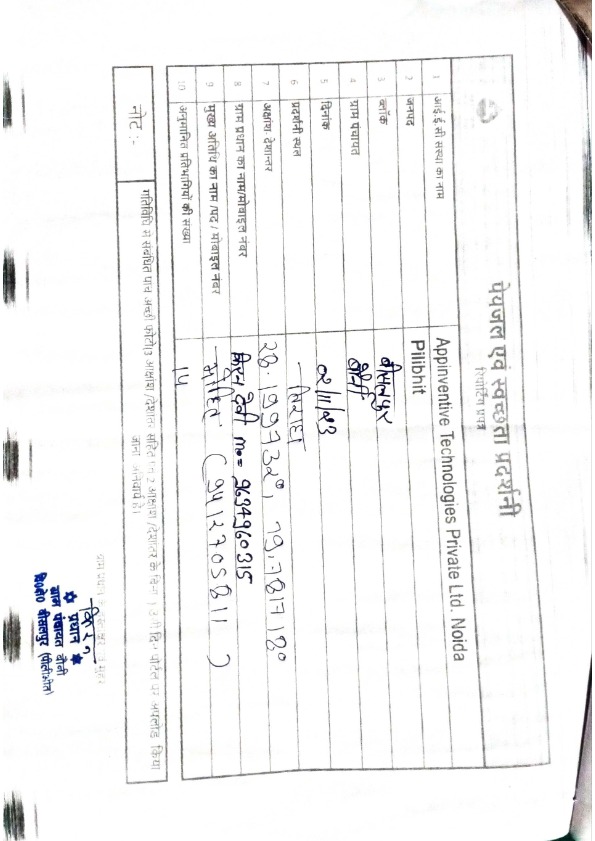 पेयजल एवं स्वच्छता प्रदर्शनी
रिपोर्टिंग प्रपत्र
1 आई ई सी संस्था का नाम Appinventive Technologies Private Ltd. Noida
2 जनपद Pilibhit
3 ब्लॉक बीसलपुर
4 ग्राम पंचायत बौनी
5 दिनांक 02/11/23
6 प्रदर्शनी स्थल
7 अक्षांश- देशान्तर 28.199732°, 79.781718°
8 ग्राम प्रधान का नाम/मोबाइल नंबर किरन देवी mo= 9634960315
9 मुख्य अतिथि का नाम /पद / मोबाइल नंबर (9412705811)
10 अनुमानित प्रतिभागियों की संख्या 14
नोट :- गतिविधि से संबंधित पांच अच्छी फोटो 3 अक्षांश /देशान्तर सहित एवं 2 अक्षांश /देशान्तर के बिना उसी दिन पोर्टल पर अपलोड किया
जाना अनिवार्य है।
किरन
प्रधान
ग्राम पंचायत बौनी
वि०क्षे० बीसलपुर (पीलीभीत)